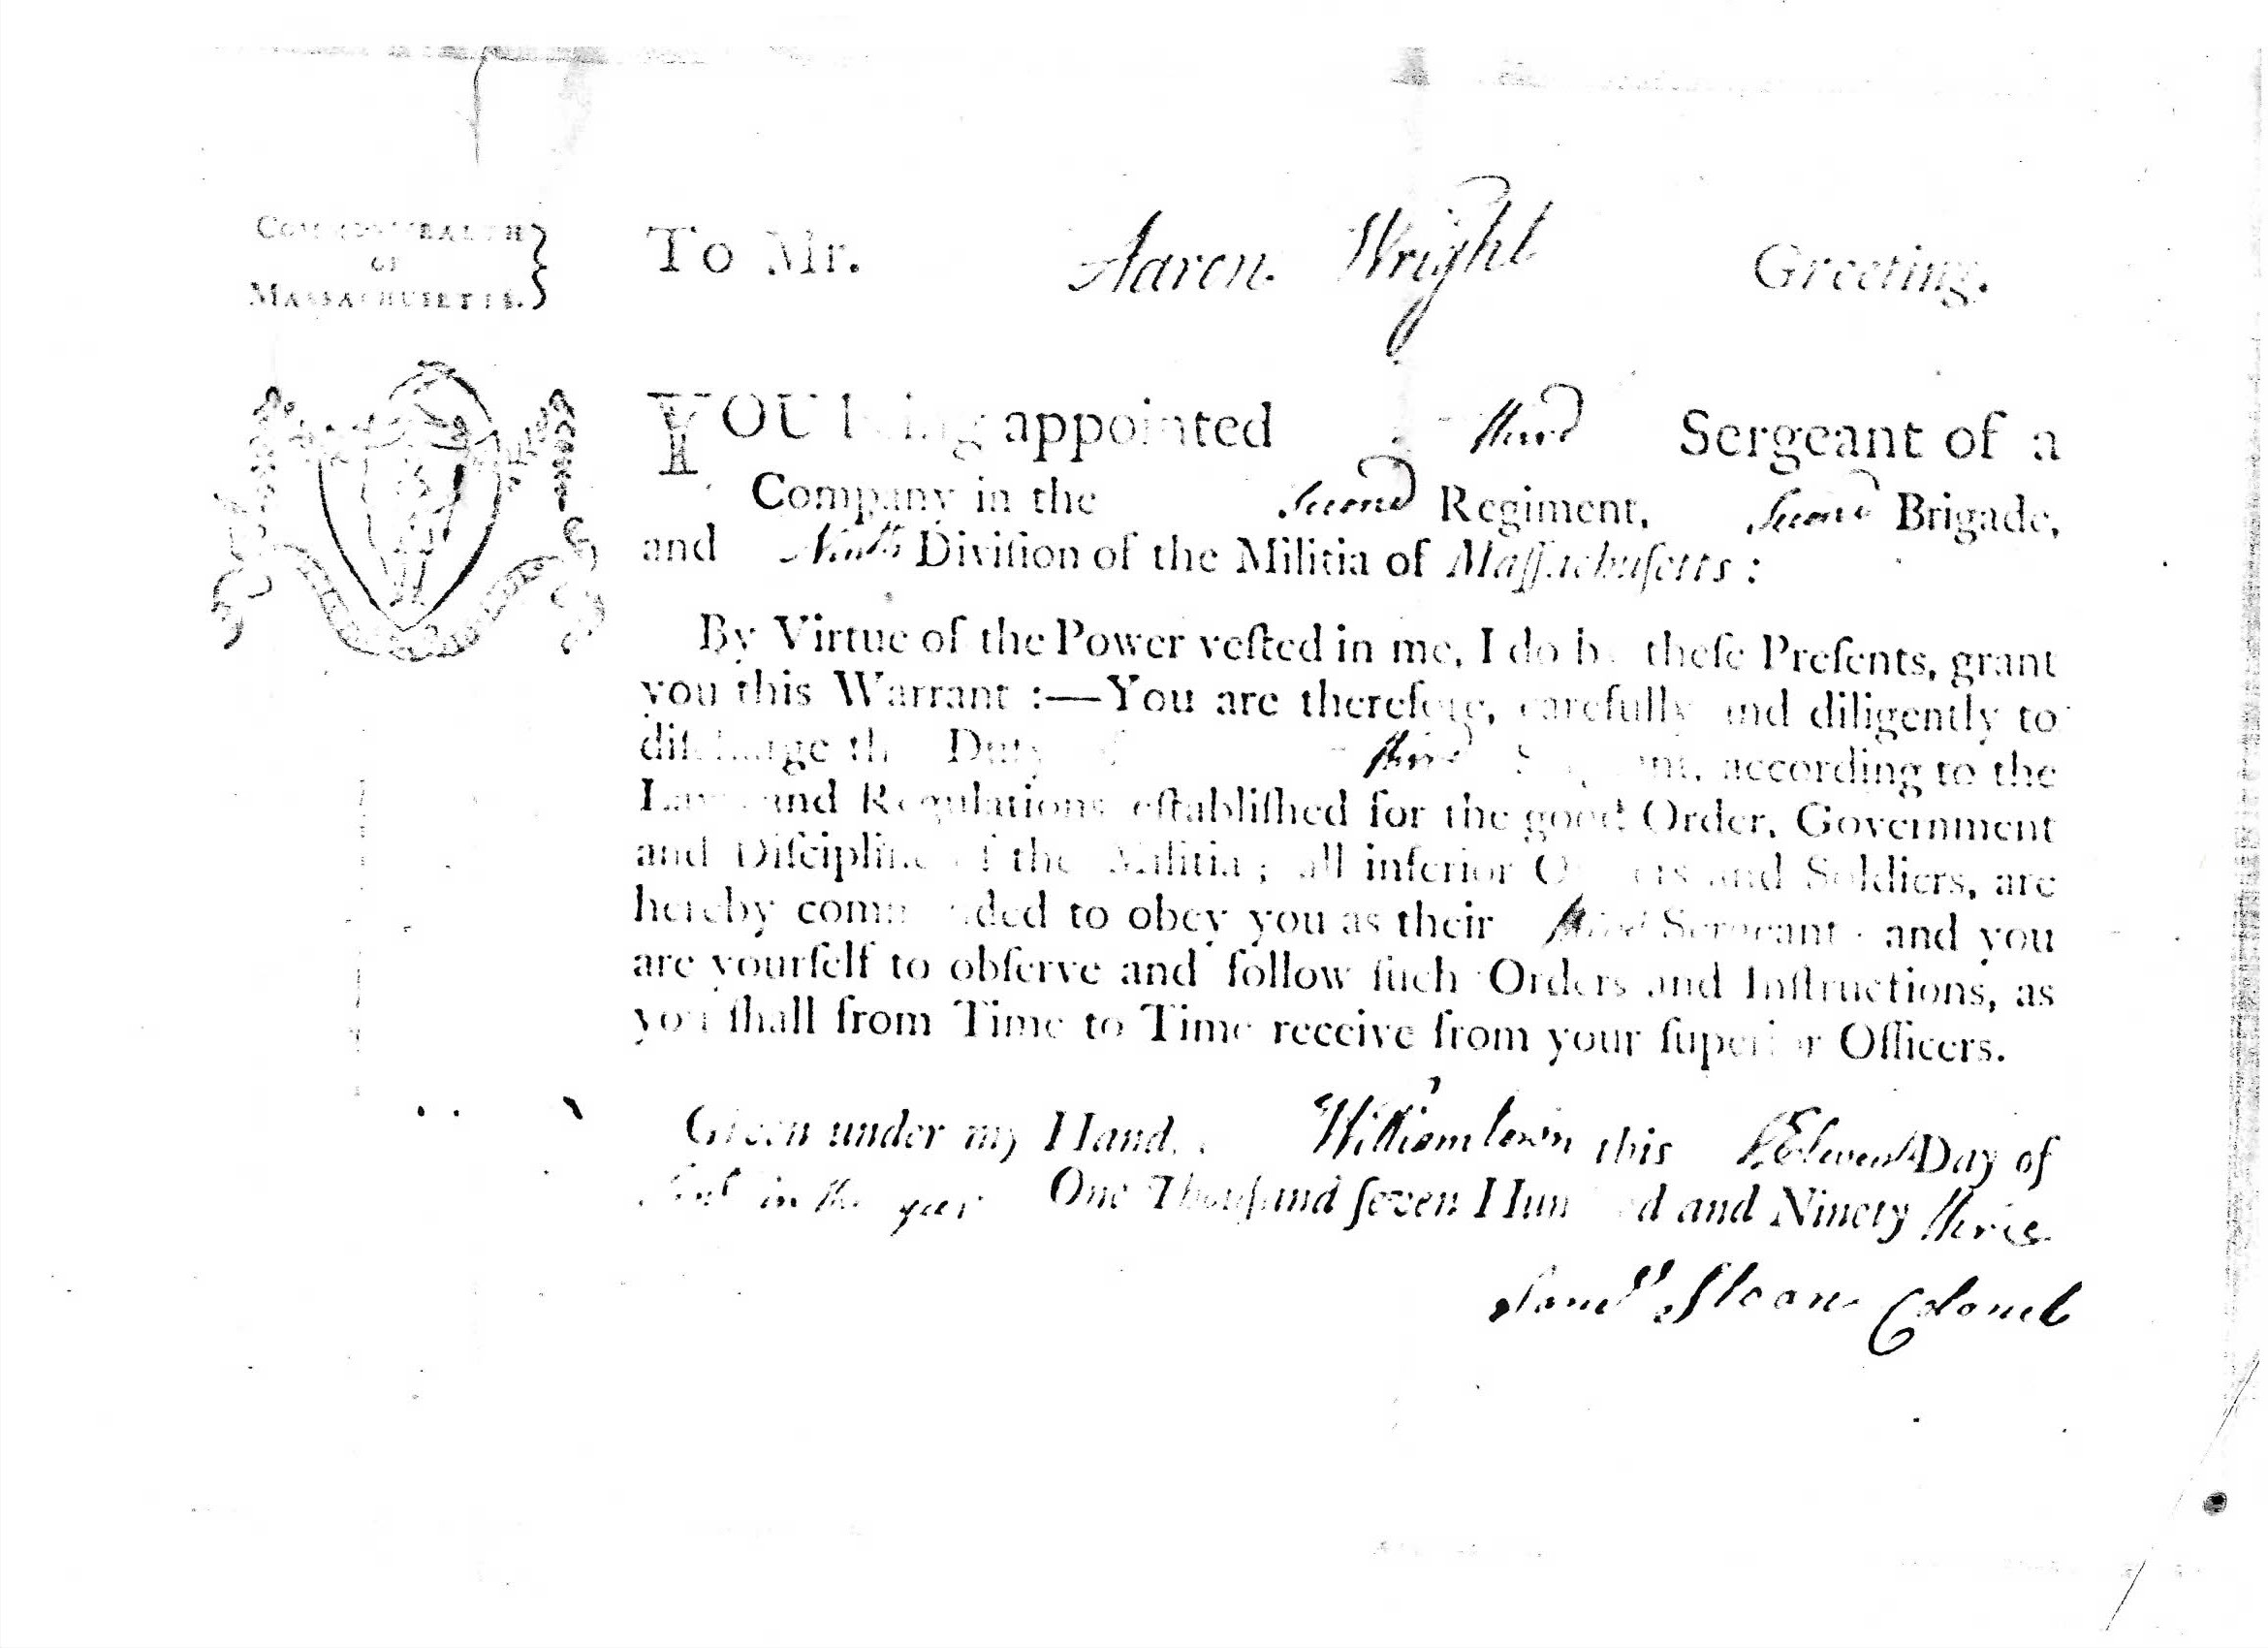 COMMONWEALTH
OF
MASSACHUSETTS.
To Mr. Aaron Wright Greeting.
YOU being appointed third Sergeant of a
Company in the Second Regiment, Second Brigade,
and Ninth Diviſion of the Militia of Maſſachuſetts:
By Virtue of the Power veſted in me, I do by theſe Preſents, grant
you this Warrant :—You are therefore, carefully and diligently to
diſcharge the Duty of third Sergeant, according to the
Laws and Regulations eſtabliſhed for the good Order, Government
and Diſcipline of the Militia; all inferior Officers and Soldiers, are
hereby commanded to obey you as their third Sergeant and you
are yourſelf to obſerve and follow ſuch Orders and Inſtructions, as
you ſhall from Time to Time receive from your ſuperior Officers.
Given under my Hand, Williamstown this Eleventh Day of
in the year One Thouſand ſeven Hundred and Ninety three
Samll Sloan Colonel